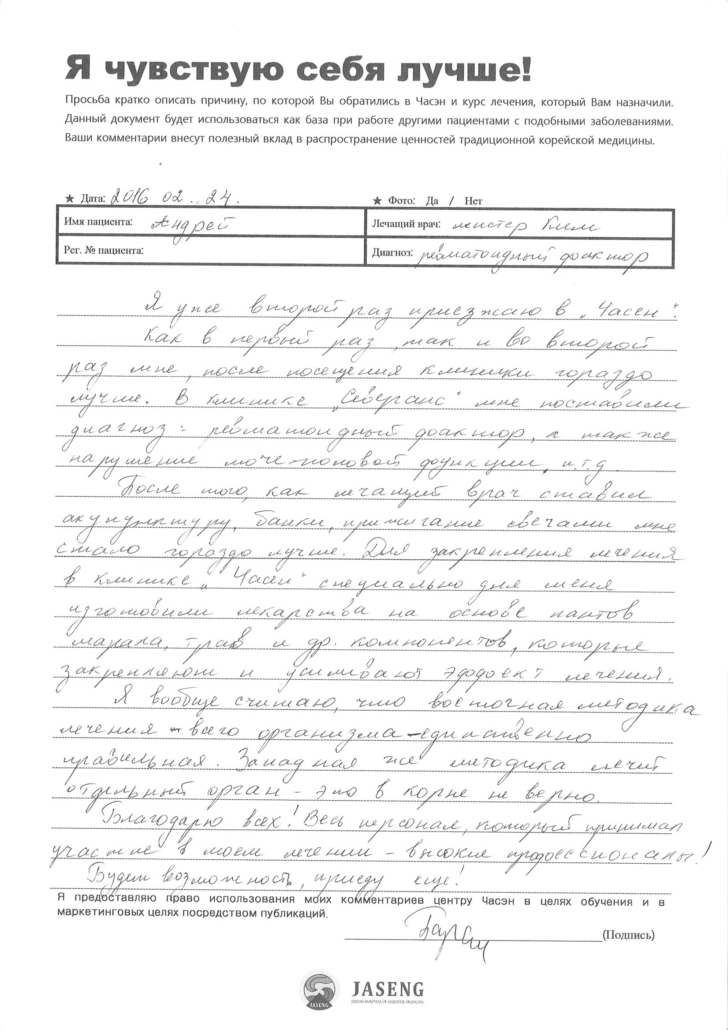 Я чувствую себя лучше!
Просьба кратко описать причину, по которой Вы обратились в Часэн и курс лечения, который Вам назначили.
Данный документ будет использоваться как база при работе другими пациентами с подобными заболеваниями.
Ваши комментарии внесут полезный вклад в распространение ценностей традиционной корейской медицины.
★ Дата: 2016 02..24. ★ Фото: Да / Нет
Имя пациента: Андрей Лечащий врач: мистер Ким
Рег. № пациента: Диагноз: ревматоидный фактор
Я уже второй раз приезжаю в „Часен“.
Как в первый раз, так и во второй
раз мне, после посещения клиники гораздо
лучше. В клинике „Северанс“ мне поставили
диагноз: ревматоидный фактор, а также
нарушение моче-половой функции, и.т.д.
После того, как лечащий врач ставил
акупунктуру, банки, прижигание свечами мне
стало гораздо лучше. Для закрепления лечения
в клинике „Часен“ специально для меня
изготовили лекарства на основе пантов
марала, трав и др. компонентов, которые
закрепляют и усиливают эффект лечения.
Я вообще считаю, что восточная методика
лечения - всего организма - единственно
правильная. Западная же методика лечит
отдельный орган - это в корне не верно.
Благодарю всех! Весь персонал, который принимал
участие в моем лечении - высокие профессионалы!
Будет возможность, приеду еще!
Я предоставляю право использования моих комментариев центру Часэн в целях обучения и в
маркетинговых целях посредством публикаций.
(Подпись)
JASENG
JASENG